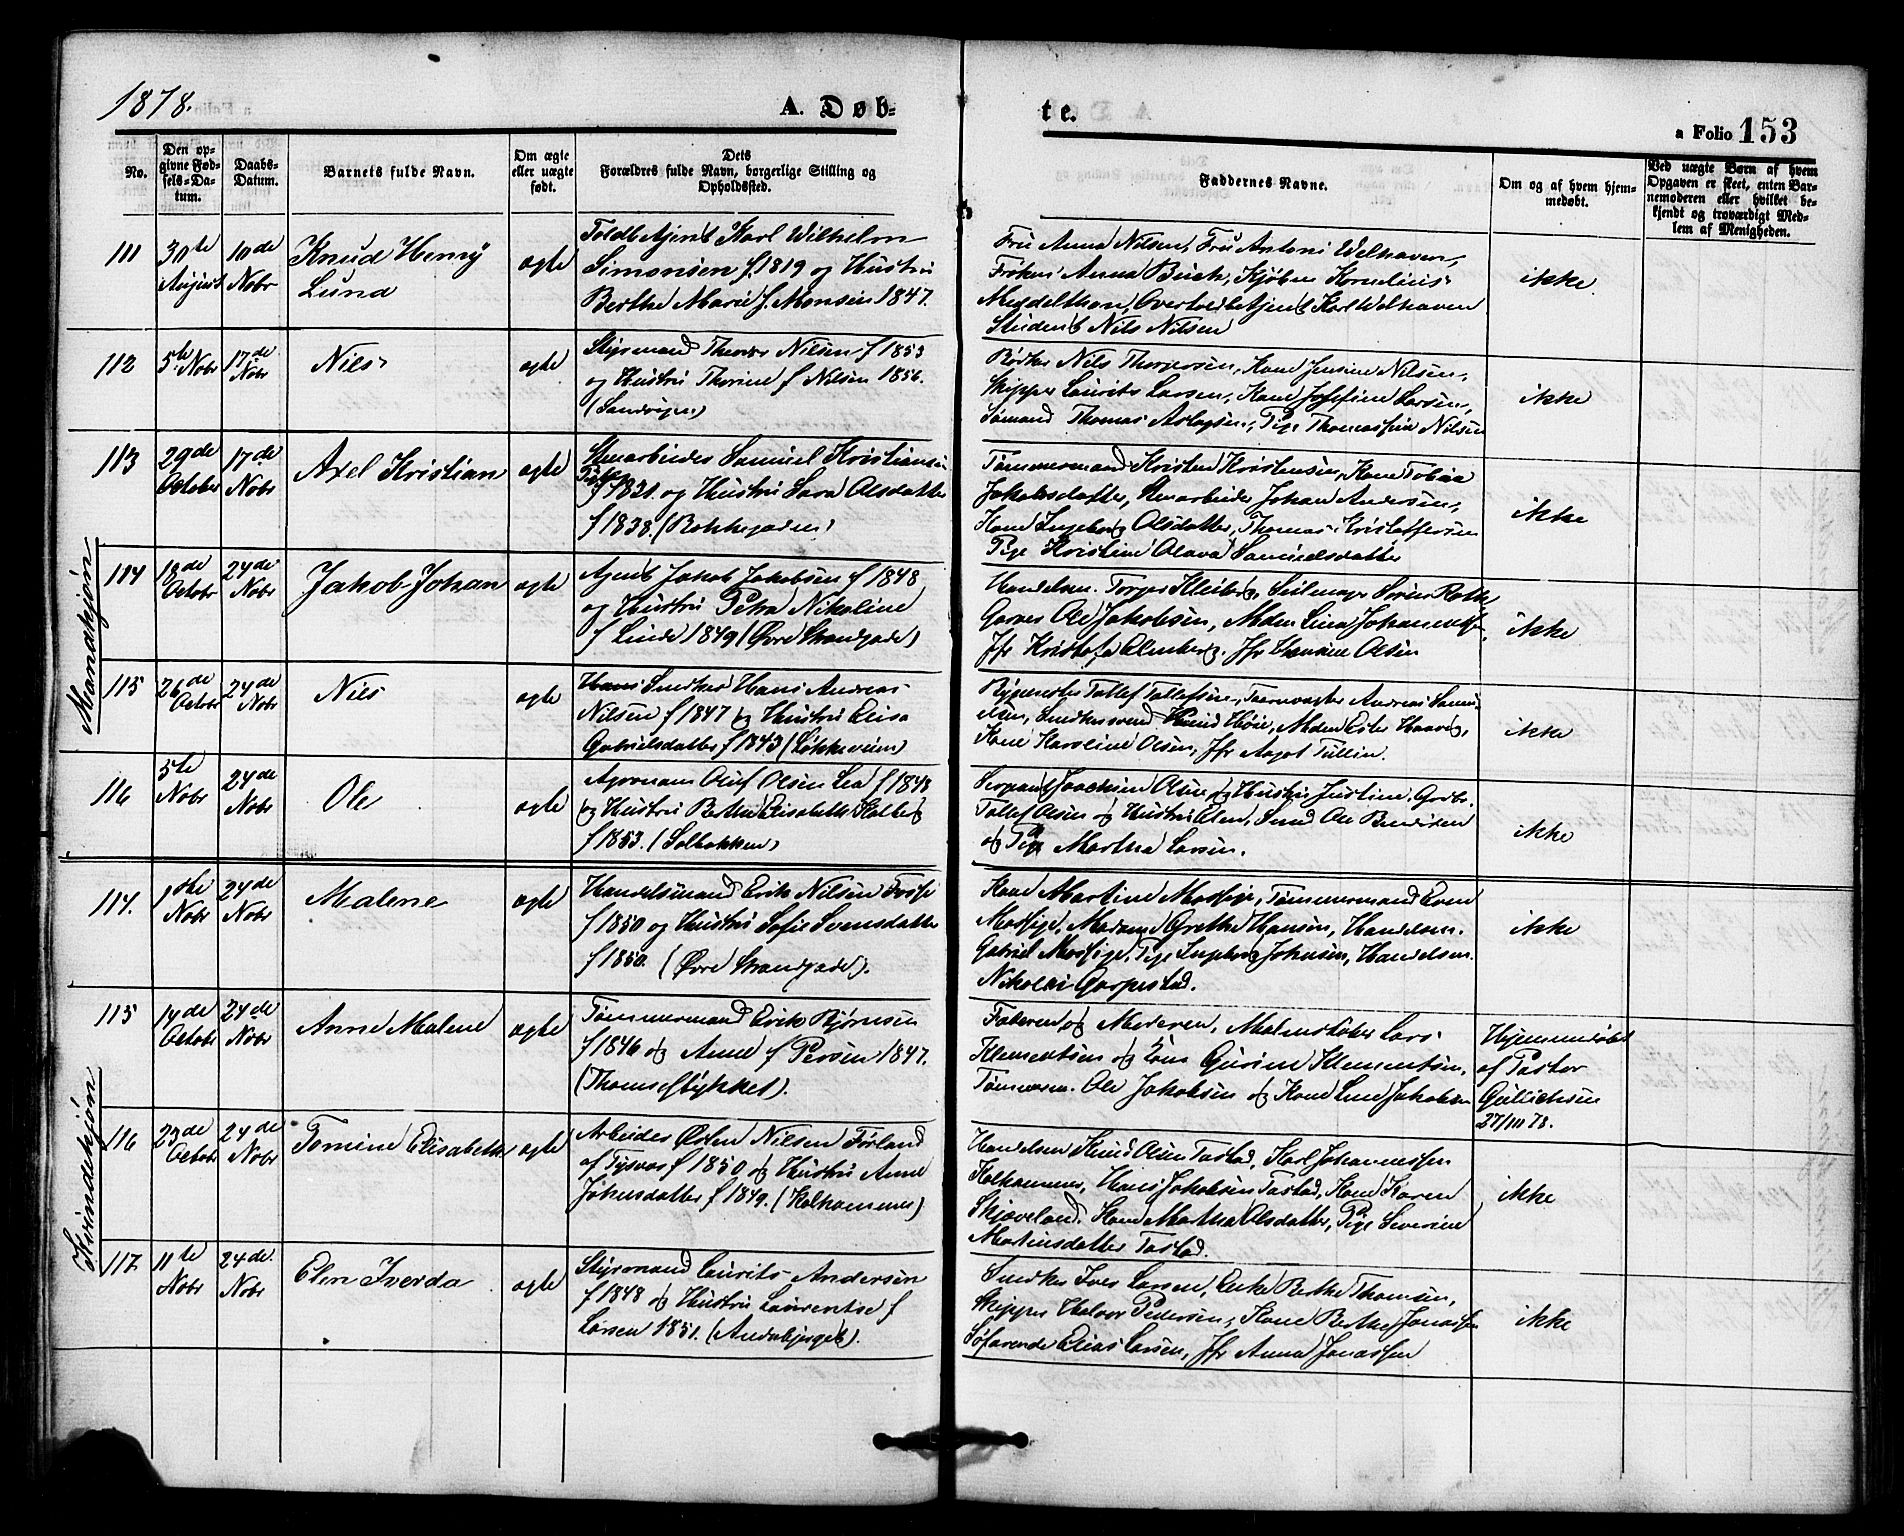 1878.
A. Døb-
te.
a Folio 153
No.
Den op-
givne Fød-
sels-Da-
tum.
Daabs-
Datum.
Barnets fulde Navn.
Om ægte
eller uægte
født.
Dets
Forældres fulde Navn, borgerlige Stilling og
Opholdssted.
Faddernes Navne.
Om og af hvem hjem-
medøbt.
Ved uægte Børn af hvem
Opgaven er skeet, enten Bar-
nemoderen eller hvilket be-
kjendt og troværdigt Med-
lem af Menigheden.
Mandkjøn
111
30te
August
10de
Nobr
Knud Henry
Lund
ægte
Toldbetjent Karl Wilhelm
Simonsen f. 1819 og Hustru
Berthe Marie f. Monsen 1847.
Fru Anna Nilsen, Fru Antoni Welhaven,
Frøken Anna Buch, Kjøbm Kornelius
Meydelthon, Overtoldbetjent Karl Welhaven
Student Nils Nilsen
ikke
112
5te Nobr
17de
Nobr
Nils
ægte
Styrmand Thomas Nilsen f 1853
og Hustru Thorine f Nilsen 1856.
(Sandvigen)
Bødker Nils Thorgersen, Kone Jensine Nilsen,
Skipper Laurits Larsen, Kone Josefine Larsen,
Sømand Thomas Aslagsen, Pige Thomasine Nilsen
ikke
113
29de
October
17de
Nobr
Axel Kristian
ægte
Stenarbeider Samuel Kristiansen
f 1821 og Hustru Sara Olsdatter
f 1838. (Bakkegaden)
Tømmermand Kristen Kristensen, Kone Tobia
Jakobsdatter, Stenarbeider Johan Andersen,
Kone Ingeborg Olsdatter, Thomas Kristoffersen
Pige Kristine Olava Samuelsdatter
ikke
114
18de
Octobr
24de
Nobr
Jakob Johan
ægte
Agent Jakob Jakobsen f 1848
og Hustru Petra Nikoline
f Linde 1849 (Øvre Strandgade)
Handelsm. Torger Kleiberg, Seilmager Sørine Roth
Garver Ole Jakobsen, Mdm Lina Johannesen,
Jfr Kristofa Almberg, Jfr Hansine Olsen
ikke
115
26de
Octobr
24de
Nobr
Nils
ægte
Hans Snedker Hans Andreas
Nilsen f 1847 og Hustru Elisa
Gabrielsdatter f 1843 (Løkkeveien)
Rebmester Tollef Tollefsen, Taarnvægter Andreas Samu-
elsen, Snedkersvend Knud Høie, Mdm Ester Haaver,
Kone Karoline Olsen, Jfr Aagot Tullin.
ikke
116
5te
Nobr
24de
Nobr
Ole
ægte
Agronom Oluf Olsen Lea f 1848
og Hustru Berthe Elisabeth Kolberg
f 1853. (Solbakken)
Sergeant Joachim Olsen og Hustru Justine, Grdbr.
Tollef Olsen og Hustru Elen, Smed Ole Bendiksen
og Pige Martha Larsen.
ikke
Kvindekjøn
114.
1ste
Nobr
24de
Nobr
Malene
ægte
Handelsmand Erik Nilsen Fosse
f 1850 og Hustru Sofie Svensdatter
f 1850. (Øvre Strandgade).
Kone Martine Mossige, Tømmermand Even
Mossige, Madame Grethe Hansen, Handelsm.
Gabriel Mossige, Pige Ingeborg Johnsen, Handelsm.
Nikolai Garpestad.
ikke
115
14de
Octobr
24de
Nobr
Anne Malene
ægte
Tømmermand Erik Bjørnsen
f 1846 og Anne f Persen 1847.
(Thomsestykket).
Faderen og Moderen, Malmstøber Lars
Klementsen og Kone Gurine Klementsen,
Tømmerm. Ole Jakobsen og Kone Lene Jakobsen
Hjemmedøbt
af Pastor
Gulichsen
27/10 78.
116
23de
Octobr
24de
Nobr
Tomine Elisabeth
ægte
Arbeider Østen Nilsen Førland
af Tysvær f 1850 og Hustru Anne
Johnsdatter f 1849. (Kalhammer)
Handelsm Knud Olsen Tastad, Karl Johannessen
Kalhammer, Hans Jakobsen Tastad, Kone Karen
Skjæveland. Kone Martha Olsdatter, Pige Severine
Mortensdatter Tastad.
ikke
117.
11te
Nobr
24de.
Nobr
Elen Iverda
ægte
Styrmand Laurits Andersen
f 1848 og Hustru Laurentse f
Larsen 1851. (Andabjerget).
Snedker Iver Larsen, Enke Berthe Thomsen,
Skipper Halvor Pedersen, Kone Berthe Jonassen
Søfarende Elias Larsen, Jfr Anna Jonassen
ikke